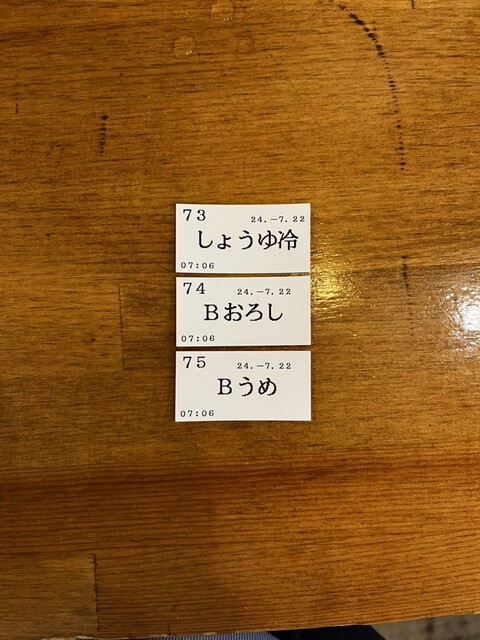 73 24.-7.22
しょうゆ冷
07:06
74 24.-7.22
Bおろし
07:06
75 24.-7.22
Bうめ
07:06